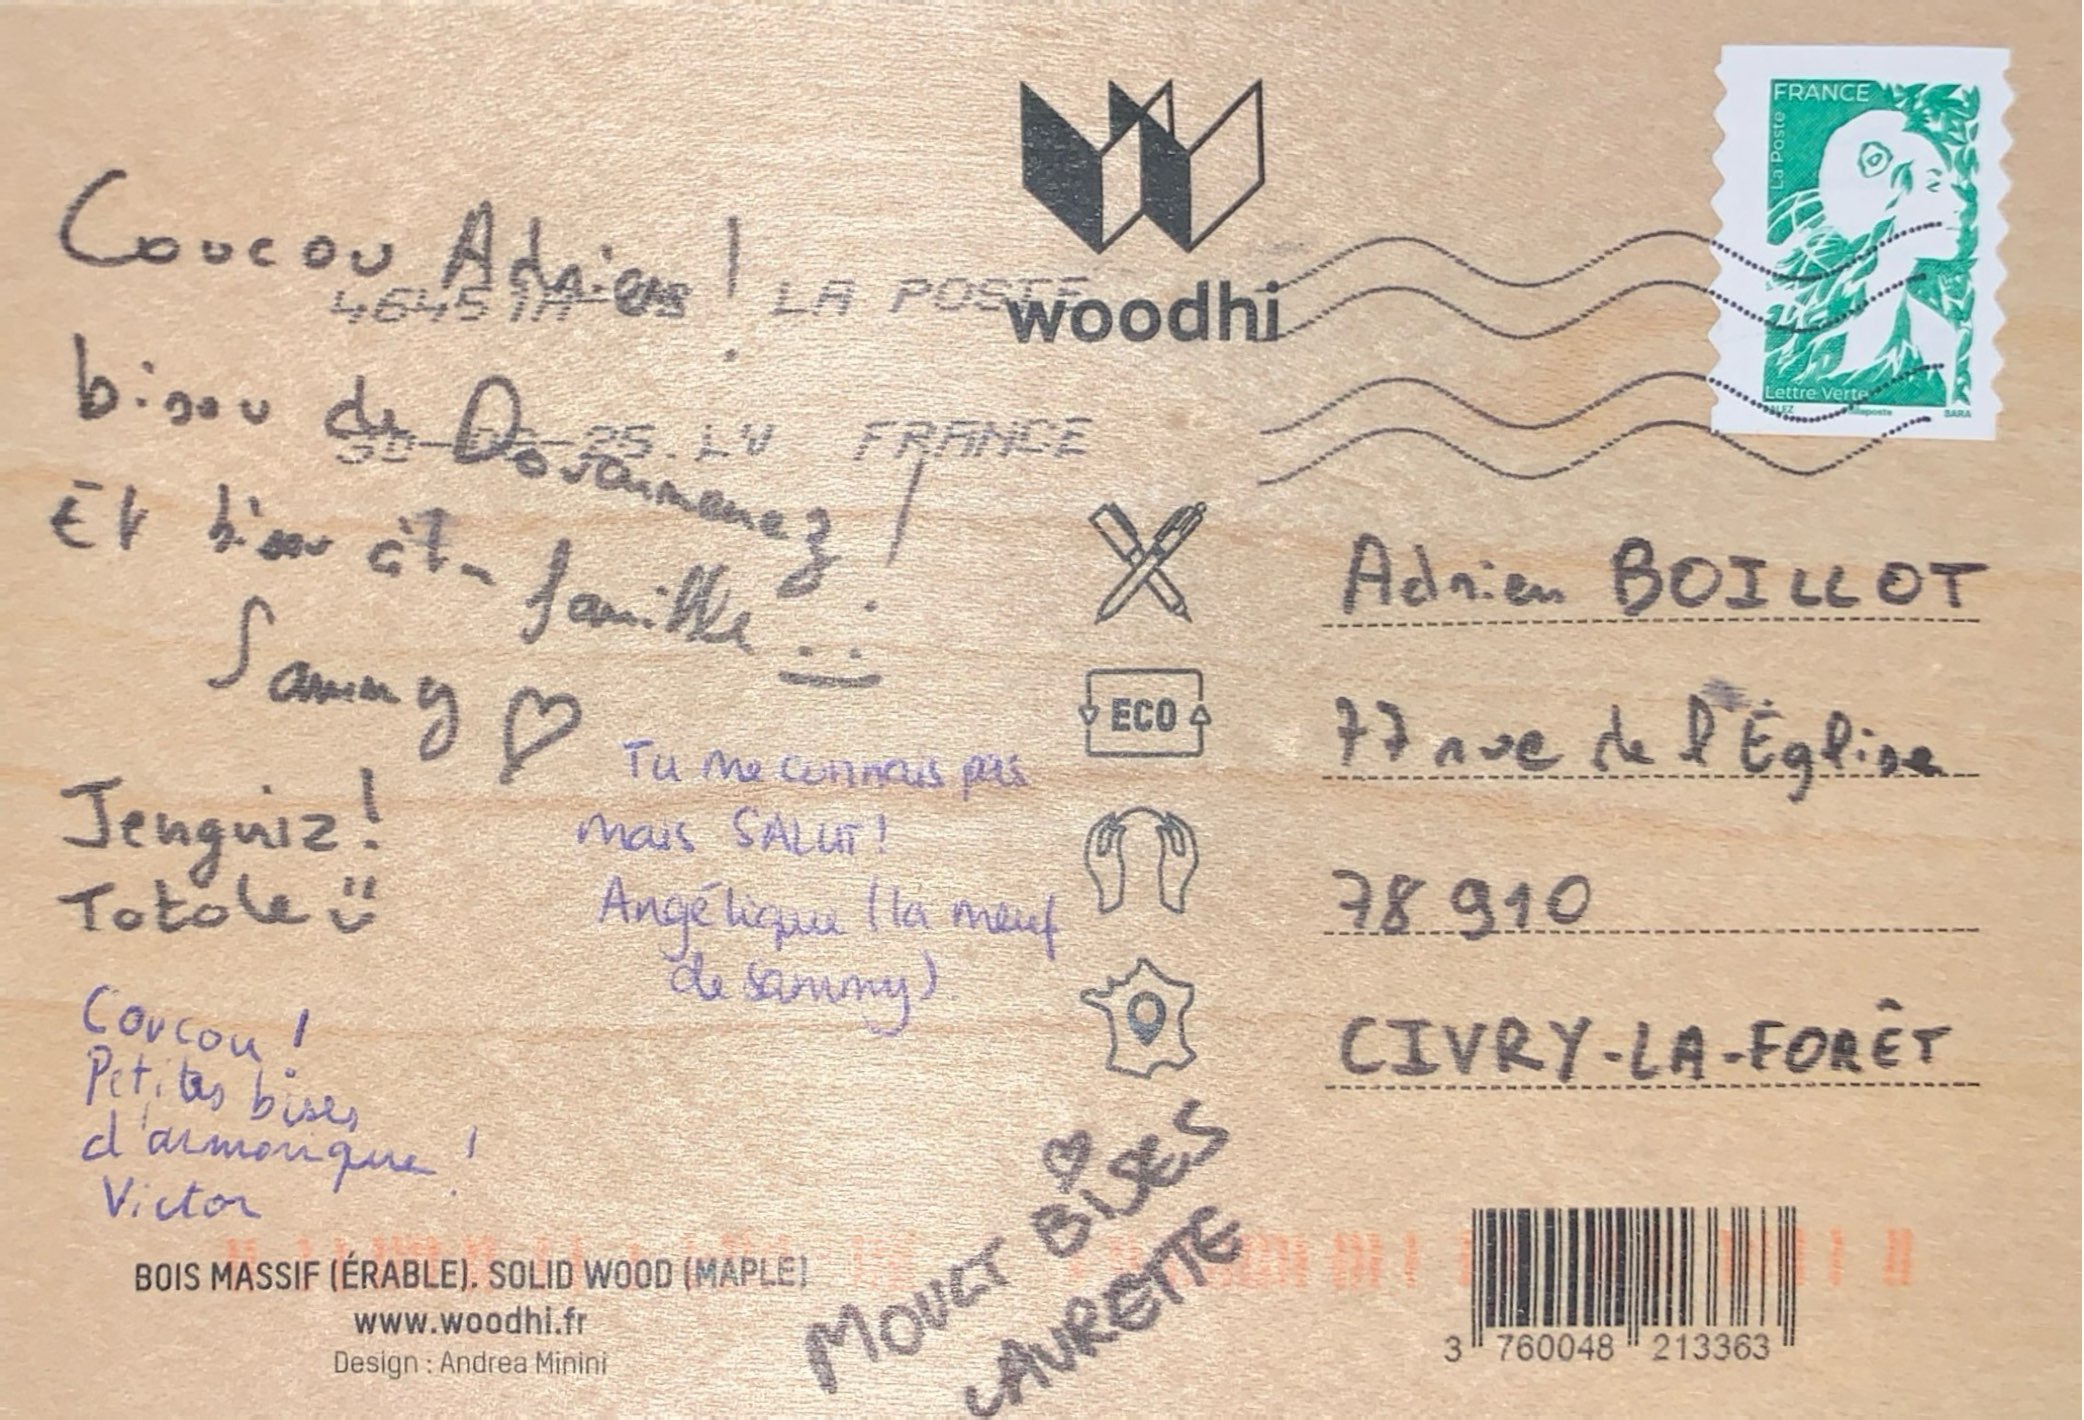 Coucou Adrien !
bisou de Douarnenez !
Et bisou à ta famille
Sammy ♡
Jenguiz !
Totole
Tu me connais pas
mais SALUT !
Angélique (la meuf
de Sammy).
Coucou !
Petites bises
d'armorique !
Victor
BOIS MASSIF (ÉRABLE). SOLID WOOD (MAPLE)
www.woodhi.fr
Design : Andrea Minini
woodhi
LA POSTE
25. LU FRANCE
ECO
BISES
LAURETTE
FRANCE
La Poste
Lettre Verte
Adrien BOILLOT
77 rue de l'Église
78 910
CIVRY-LA-FORÊT
3 760048 213363